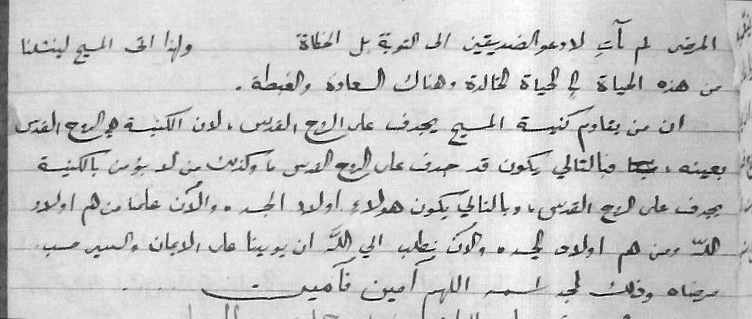 المرضى لم آتِ لادعو الصديقين الى التوبة بل الخطاة ولهذا اتى المسيح لينشلنا
من هذه الحياة الى الحياة الخالدة وهناك السعادة والغبطة.
ان من يقاوم كنيسة المسيح يجدف على الروح القدس، لان الكنيسة هي الروح القدس
بعينه، فبالتالي يكون قد جدف على الروح القدس، وكذلك من لا يؤمن بالكنيسة
يجدف على الروح القدس، وبالتالي يكون هؤلاء اولاد الجسد. والآن علمنا من هم اولاد
الله ومن هم اولاد الجسد. والآن نطلب الى الله ان يربينا على الايمان والسير حسب
مرضاه وذلك لمجد اسمه اللهم آمين فآمين